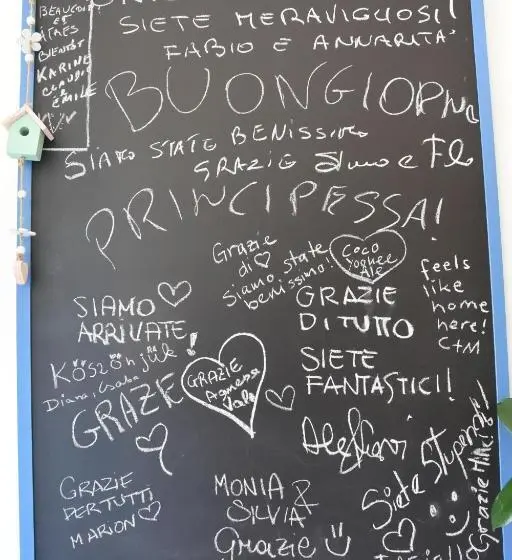 BEAUCOUP
ET
A TRES
BIENTOT
KARINE
CLAUDIO
&
EMILE
SIETE MERAVIGLIOSI!
FABIO E ANNARITA'
BUONGIORNO
SIAMO STATE BENISSIMO
GRAZIE
PRINCIPESSA!
Grazie
di ♡
siamo state
benissimo!
Coco
Ale
GRAZIE
DI TUTTO
SIETE
FANTASTICI!!
feels
like
home
here!
C+M
SIAMO ♡
ARRIVATE!
Köszönjük
Diana, Csaba
GRAZIE
GRAZIE
Agnese
Vale
GRAZIE
PER TUTTI
MARION ♡
MONIA &
SILVIA
Grazie
Siete stupendi!
Grazie